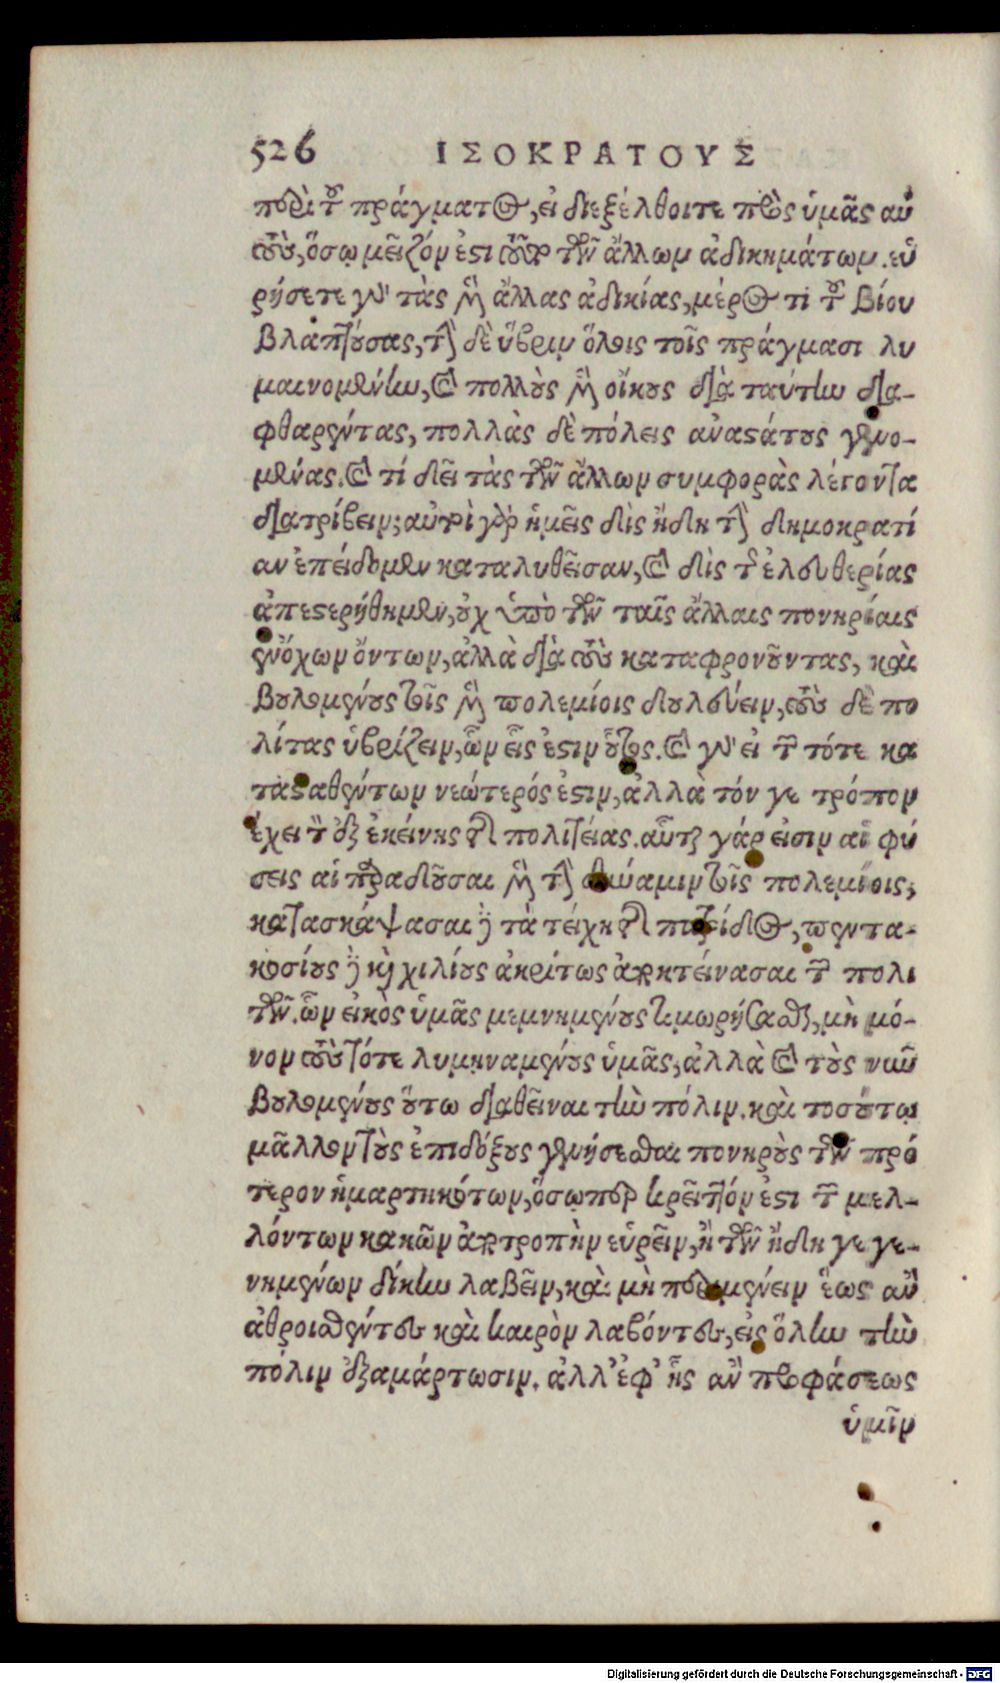 526 ΙΣΟΚΡΑΤΟΥΣ
περὶ τοῦ πράγματος, εἰ διεξέλθοιτε πρὸς ὑμᾶς αὐ
τοὺς, ὅσῳ μεῖζόν ἐστι τοῦτο τῶν ἄλλων ἀδικημάτων. εὑ
ρήσετε γὰρ τὰς μὲν ἄλλας ἀδικίας, μέρος τι τοῦ βίου
βλαπτούσας, τὴν δὲ ὕβριν ὅλοις τοῖς πράγμασι λυ
μαινομένην, καὶ πολλοὺς μὲν οἴκους διὰ ταύτην δια-
φθαρέντας, πολλὰς δὲ πόλεις ἀναστάτους γενο-
μένας. καὶ τί δεῖ τὰς τῶν ἄλλων συμφορὰς λέγοντα
διατρίβειν; αὐτοὶ γὰρ ἡμεῖς δὶς ἤδη τὴν δημοκρατί
αν ἐπείδομεν καταλυθεῖσαν, καὶ δὶς τῆς ἐλευθερίας
ἀπεστερήθημεν, οὐχ ὑπὸ τῶν ταῖς ἄλλαις πονηρίαις
ἐνόχων ὄντων, ἀλλὰ διὰ τοὺς καταφρονοῦντας, καὶ
βουλομένους τοῖς μὲν πολεμίοις δουλεύειν, τοὺς δὲ πο
λίτας ὑβρίζειν, ὧν εἷς ἐστιν οὗτος. καὶ γὰρ εἰ τῶν τότε κα
τασταθέντων νεώτερός ἐστιν, ἀλλὰ τόν γε τρόπον
ἔχει τὸν ἐξ ἐκείνης τῆς πολιτείας. αὗται γάρ εἰσιν αἱ φύ
σεις αἱ παραδοῦσαι μὲν τὴν δύναμιν τοῖς πολεμίοις,
κατασκάψασαι δὲ τὰ τείχη τῆς πατρίδος, πεντα-
κοσίους δὲ καὶ χιλίους ἀκρίτως ἀποκτείνασαι τῶν πολι
τῶν. ὧν εἰκὸς ὑμᾶς μεμνημένους τιμωρήσασθαι, μὴ μό-
νον τοὺς τότε λυμηναμένους ὑμᾶς, ἀλλὰ καὶ τοὺς νῦν
βουλομένους οὕτω διαθεῖναι τὴν πόλιν. καὶ τοσούτῳ
μᾶλλον τοὺς ἐπιδόξους γενήσεσθαι πονηροὺς τῶν πρό
τερον ἡμαρτηκότων, ὅσῳπερ κρεῖττόν ἐστι τῶν μελ-
λόντων κακῶν ἀποτροπὴν εὑρεῖν, ἢ τῶν ἤδη γεγε-
νημένων δίκην λαβεῖν, καὶ μὴ περιμένειν ἕως ἂν
ἀθροισθέντες καὶ καιρὸν λαβόντες, εἰς ὅλην τὴν
πόλιν ἐξαμάρτωσιν. ἀλλ' ἐφ' ἧς ἂν προφάσεως
ὑμῖν
Digitalisierung gefördert durch die Deutsche Forschungsgemeinschaft - DFG